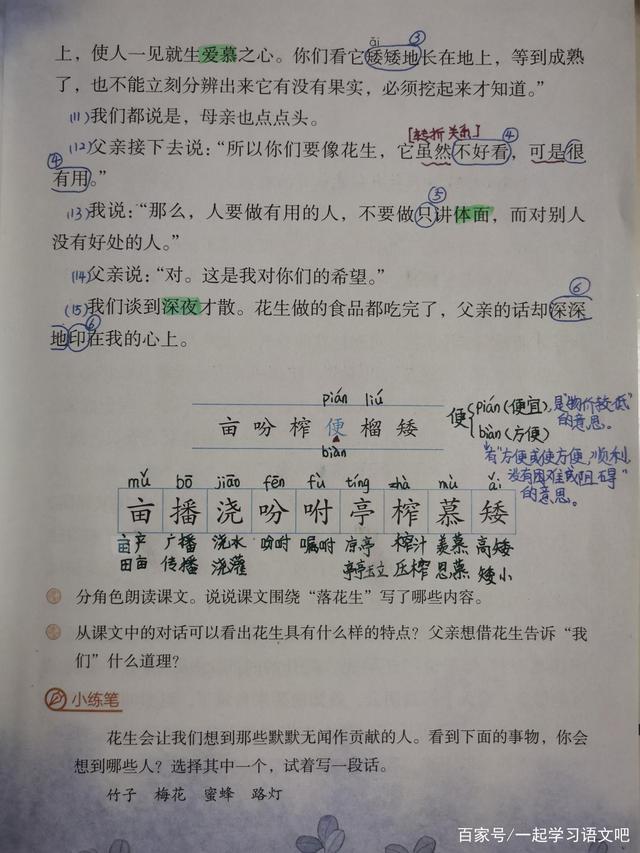 ǎi ③
上，使人一见就生爱慕之心。你们看它矮矮地长在地上，等到成熟
了，也不能立刻分辨出来它有没有果实，必须挖起来才知道。”
(11)我们都说是，母亲也点点头。
[转折关系] ④
(12)父亲接下去说：“所以你们要像花生，它虽然不好看，可是很
④
有用。”
⑤
(13)我说：“那么，人要做有用的人，不要做只讲体面，而对别人
没有好处的人。”
(14)父亲说：“对。这是我对你们的希望。” ⑥
(15)我们谈到深夜才散。花生做的食品都吃完了，父亲的话却深深
⑥
地印在我的心上。
pián liú
亩 吩 榨 便 榴 矮
biàn
便{pián(便宜)，是“物价较低”的意思。
biàn(方便)
有“方便或使方便，顺利，
没有困难或阻碍”
的意思。
mǔ bō jiāo fēn fù tíng zhà mù ǎi
亩 播 浇 吩 咐 亭 榨 慕 矮
亩产 广播 浇水 吩咐 嘱咐 凉亭 榨汁 羡慕 高矮
田亩 传播 浇灌 亭亭玉立 压榨 思慕 矮小
分角色朗读课文。说说课文围绕“落花生”写了哪些内容。
从课文中的对话可以看出花生具有什么样的特点？父亲想借花生告诉“我
们”什么道理？
小练笔
花生会让我们想到那些默默无闻作贡献的人。看到下面的事物，你会
想到哪些人？选择其中一个，试着写一段话。
竹子 梅花 蜜蜂 路灯
百家号/一起学习语文吧